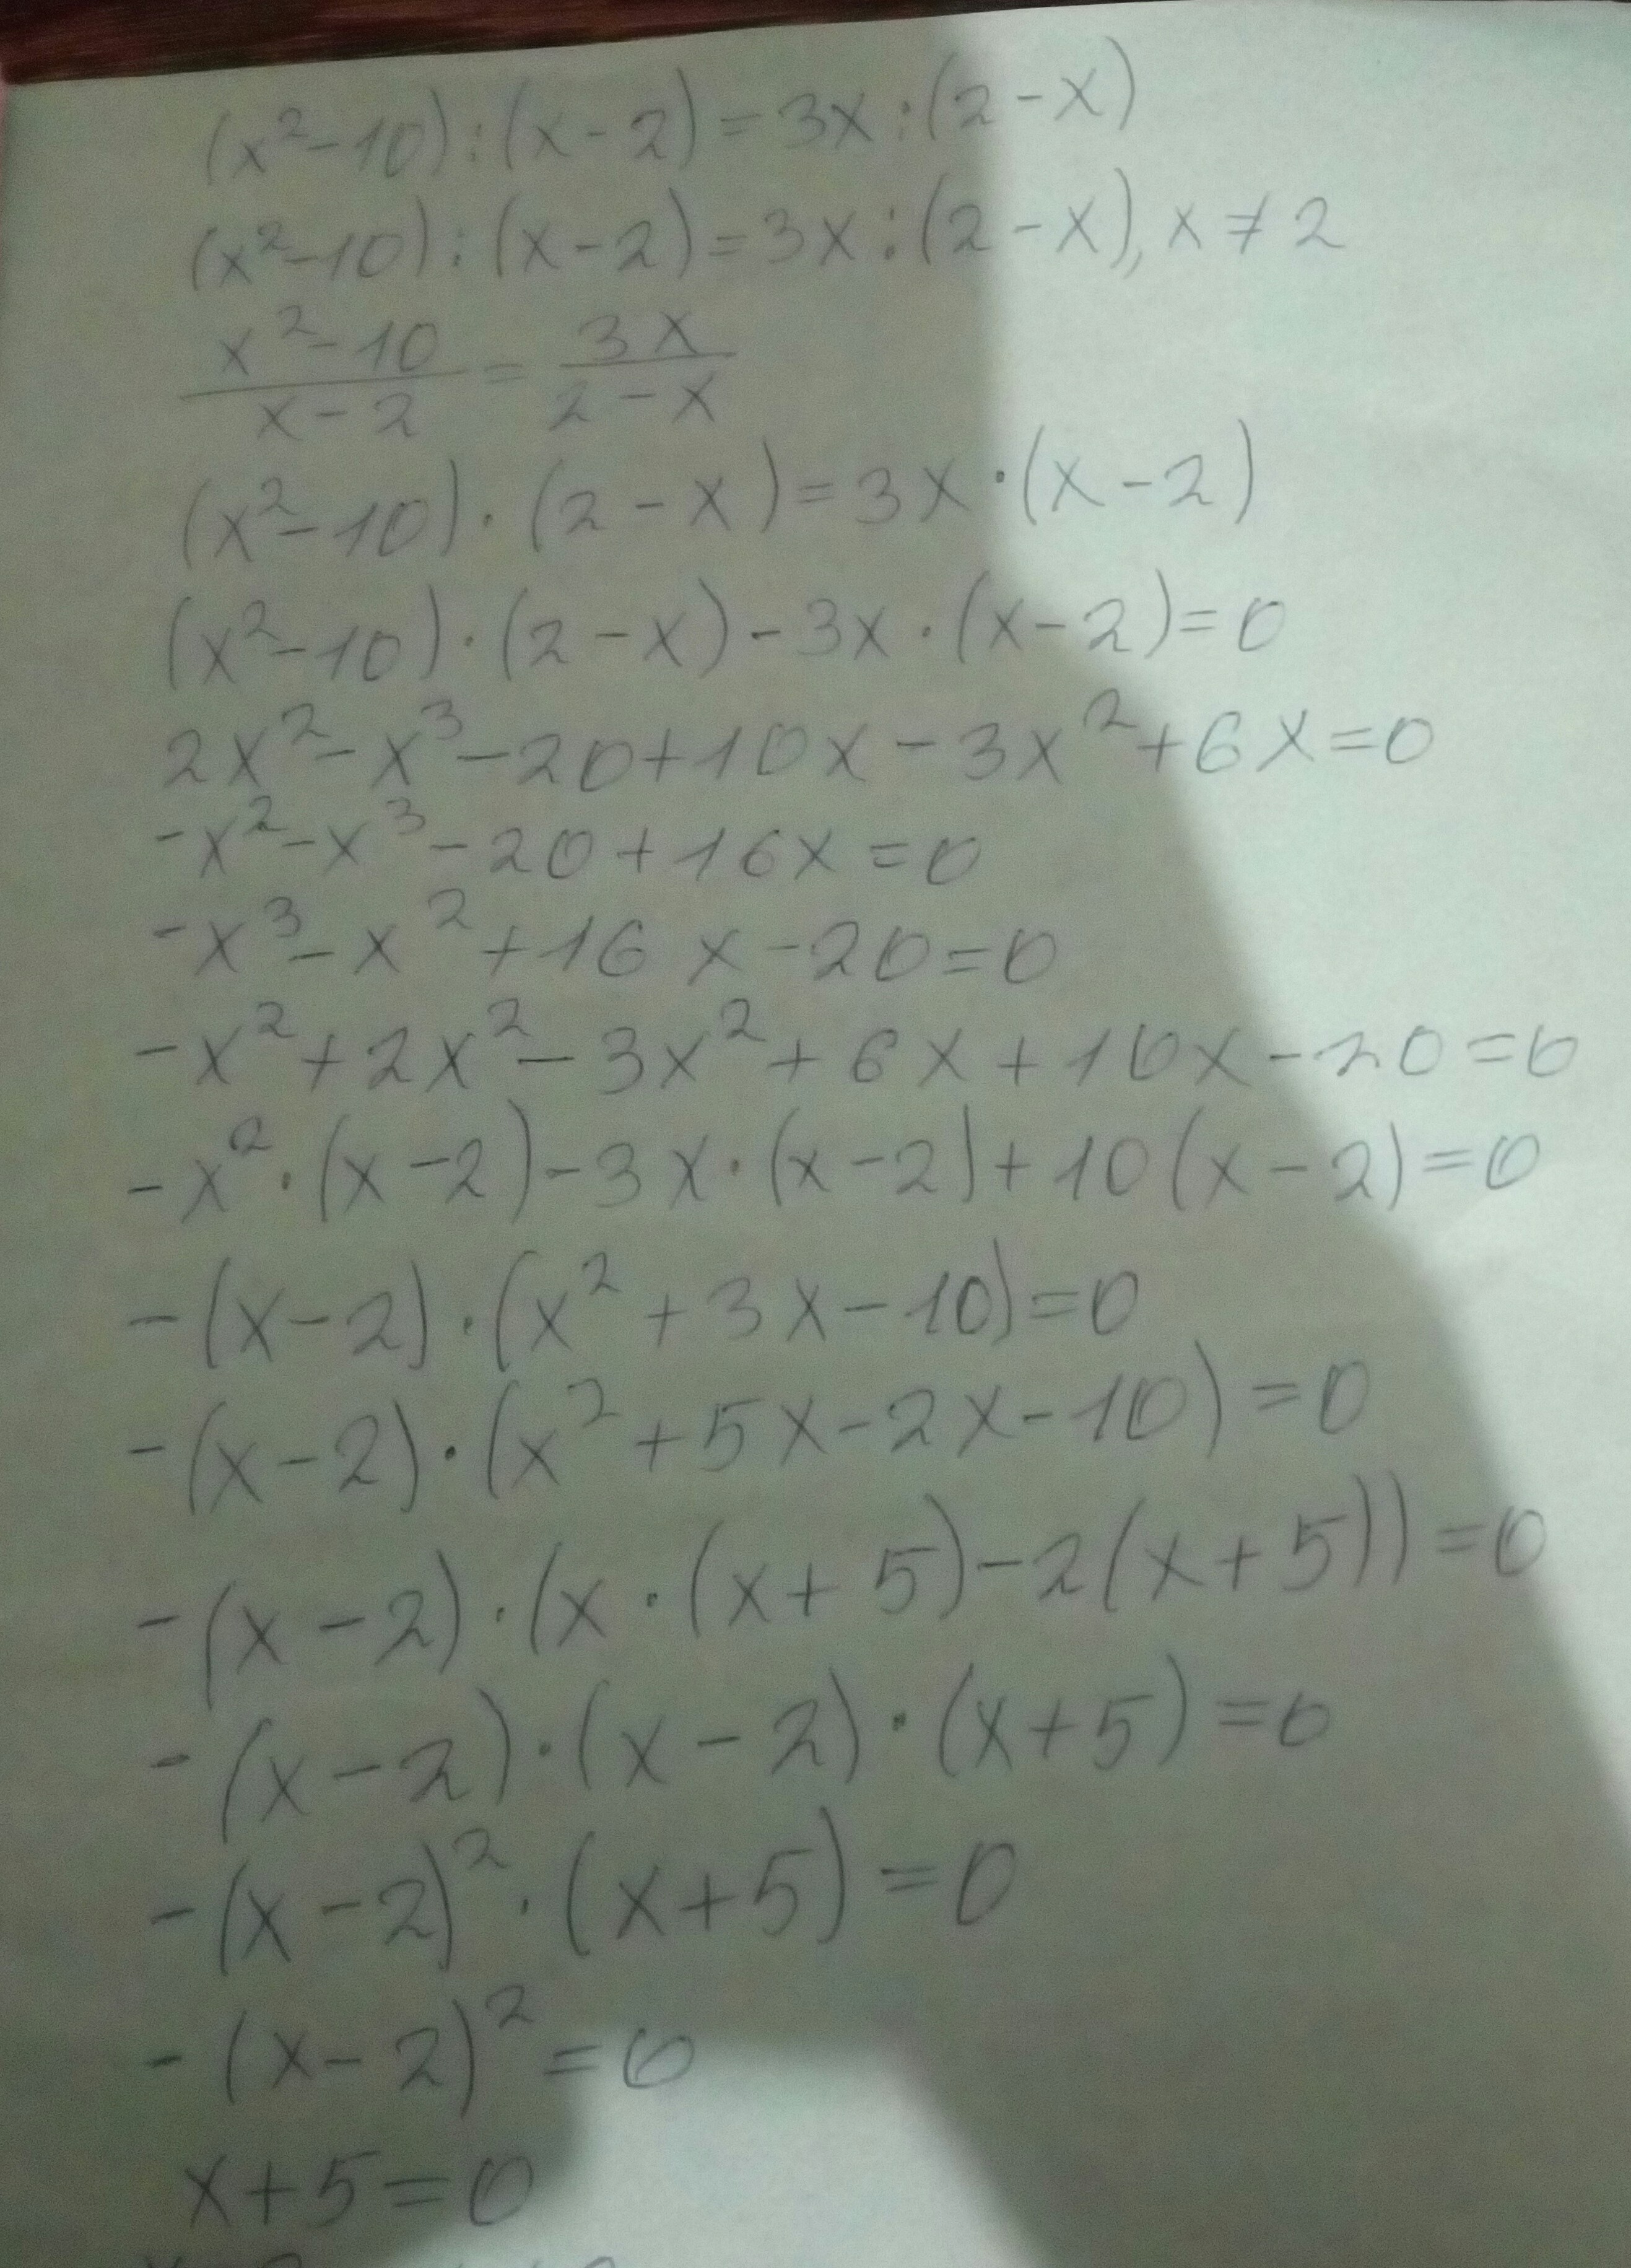 (x²-10):(x-2)=3x:(2-x)
(x²-10):(x-2)=3x:(2-x), x≠2
x²-10/x-2 = 3x/2-x
(x²-10)·(2-x)=3x·(x-2)
(x²-10)·(2-x)-3x·(x-2)=0
2x²-x³-20+10x-3x²+6x=0
-x²-x³-20+16x=0
-x³-x²+16x-20=0
-x²+2x²-3x²+6x+10x-20=0
-x²·(x-2)-3x·(x-2)+10(x-2)=0
-(x-2)·(x²+3x-10)=0
-(x-2)·(x²+5x-2x-10)=0
-(x-2)·(x·(x+5)-2(x+5))=0
-(x-2)·(x-2)·(x+5)=0
-(x-2)²·(x+5)=0
-(x-2)²=0
x+5=0